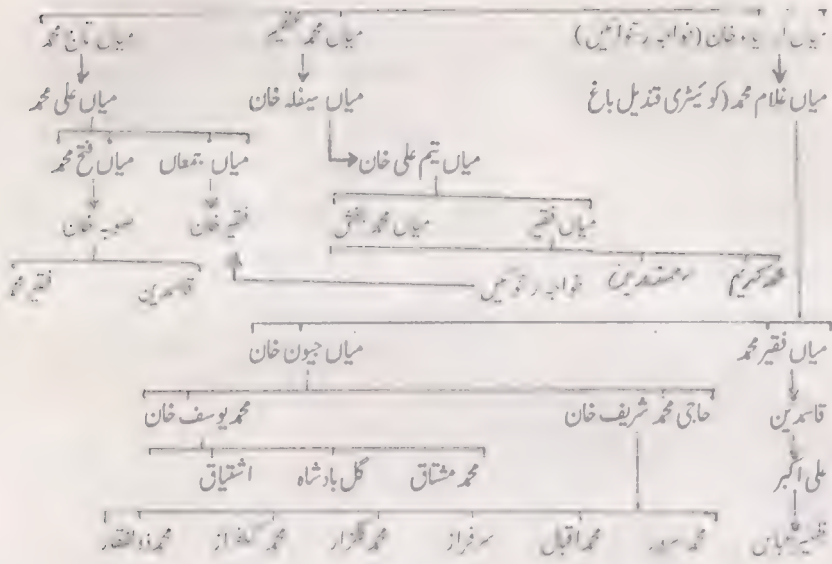 میاں خان (خواجہ رتو آئیں) میاں محمد عظیم میاں تاج محمد
میاں غلام محمد (کوئیٹری قندیل باغ میاں سیفلہ خان میاں علی محمد
میاں تیم علی خان میاں جمعاں میاں فتح محمد
میاں فقیر میاں محمد بخش فقیر خان صوبہ خان
محمد کریم سمندرین خواجہ رتو آئیں قاسدین فقیر محمد
میاں فقیر محمد میاں جیون خان
قاسدین حاجی محمد شریف خان محمد یوسف خان
علی اکبر محمد مشتاق گل بادشاہ اشتیاق
ظہیر عباس محمد سرور محمد اقبال سرفراز محمد گلزار محمد گلفراز محمد ذوالفقار